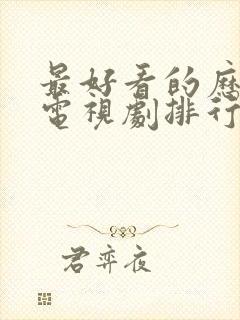 最好看的歷
電視劇排行
君弈夜